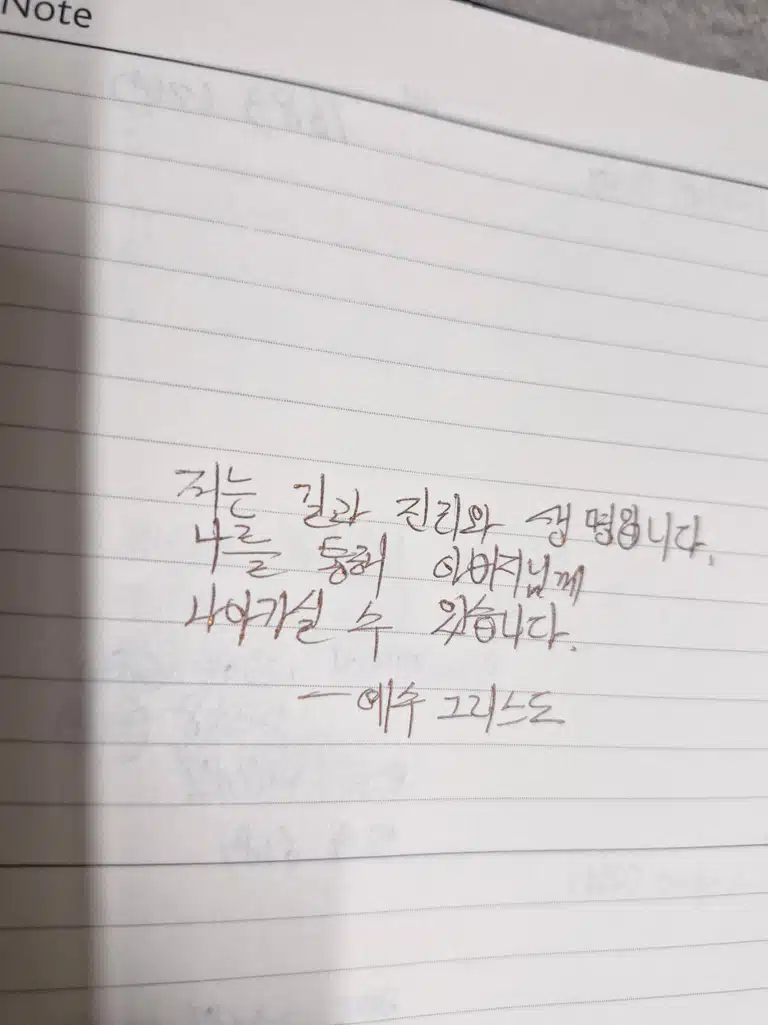 Note
저는 길과 진리와 생명입니다.
나를 통해 아버지님께
나아가실 수 있습니다.
— 예수 그리스도